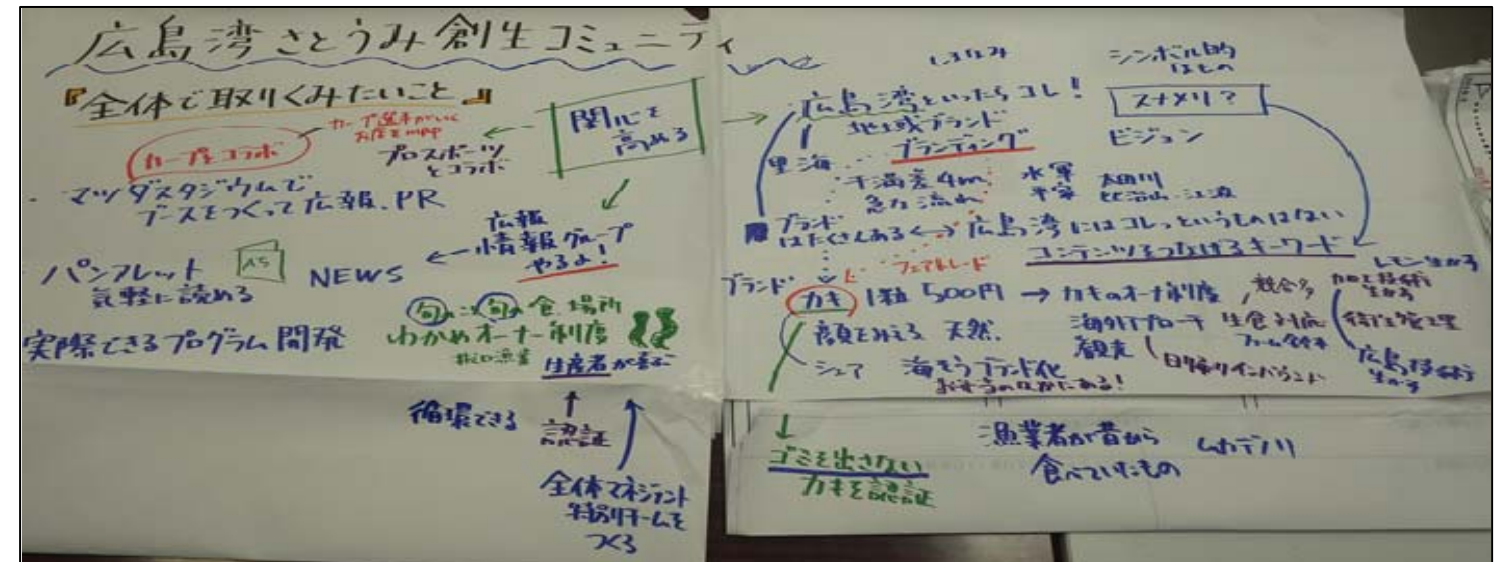 広島湾さとうみ創生コミュニティ
『全体で取りくみたいこと』
関心を
高める
カープとコラボ
カープ選手がいく
お店をmap
プロスポーツ
とコラボ
・マツダスタジアムで
ブースをつくって広報、PR
広報
情報グループ
やるよ!
・パンフレット
気軽に読める
A5
NEWS
実際できるプログラム開発
旬
旬の食 場所
わかめオーナー制度
生産者が喜ぶ
循環できる
認証
全体マネジメント
特別チームを
つくる
シンボル的
なもの
スナメリ?
ビジョン
・広島湾といったらコレ!
地域ブランド
ブランディング
里海
干満差4m
急な流れ
水軍
平家
太田川
比治山・江波
ブランド
はたくさんある ↔ 広島湾にはコレっというものはない
コンテンツをつなげるキーワード
ブランド
フェアトレード
カキ 1粒 500円 → カキのオーナー制度
顔をみえる 天然
シェア
海そうブランド化
お弁当のなかにある!
海外アプローチ
観光
生食対応
日帰りインバウンド
レモン生かす
加工技術
生かす
衛生管理
広島技術
生かす
ゴミを出さない
カキを認証
漁業者が昔から
食べていたもの
ムカデノリ